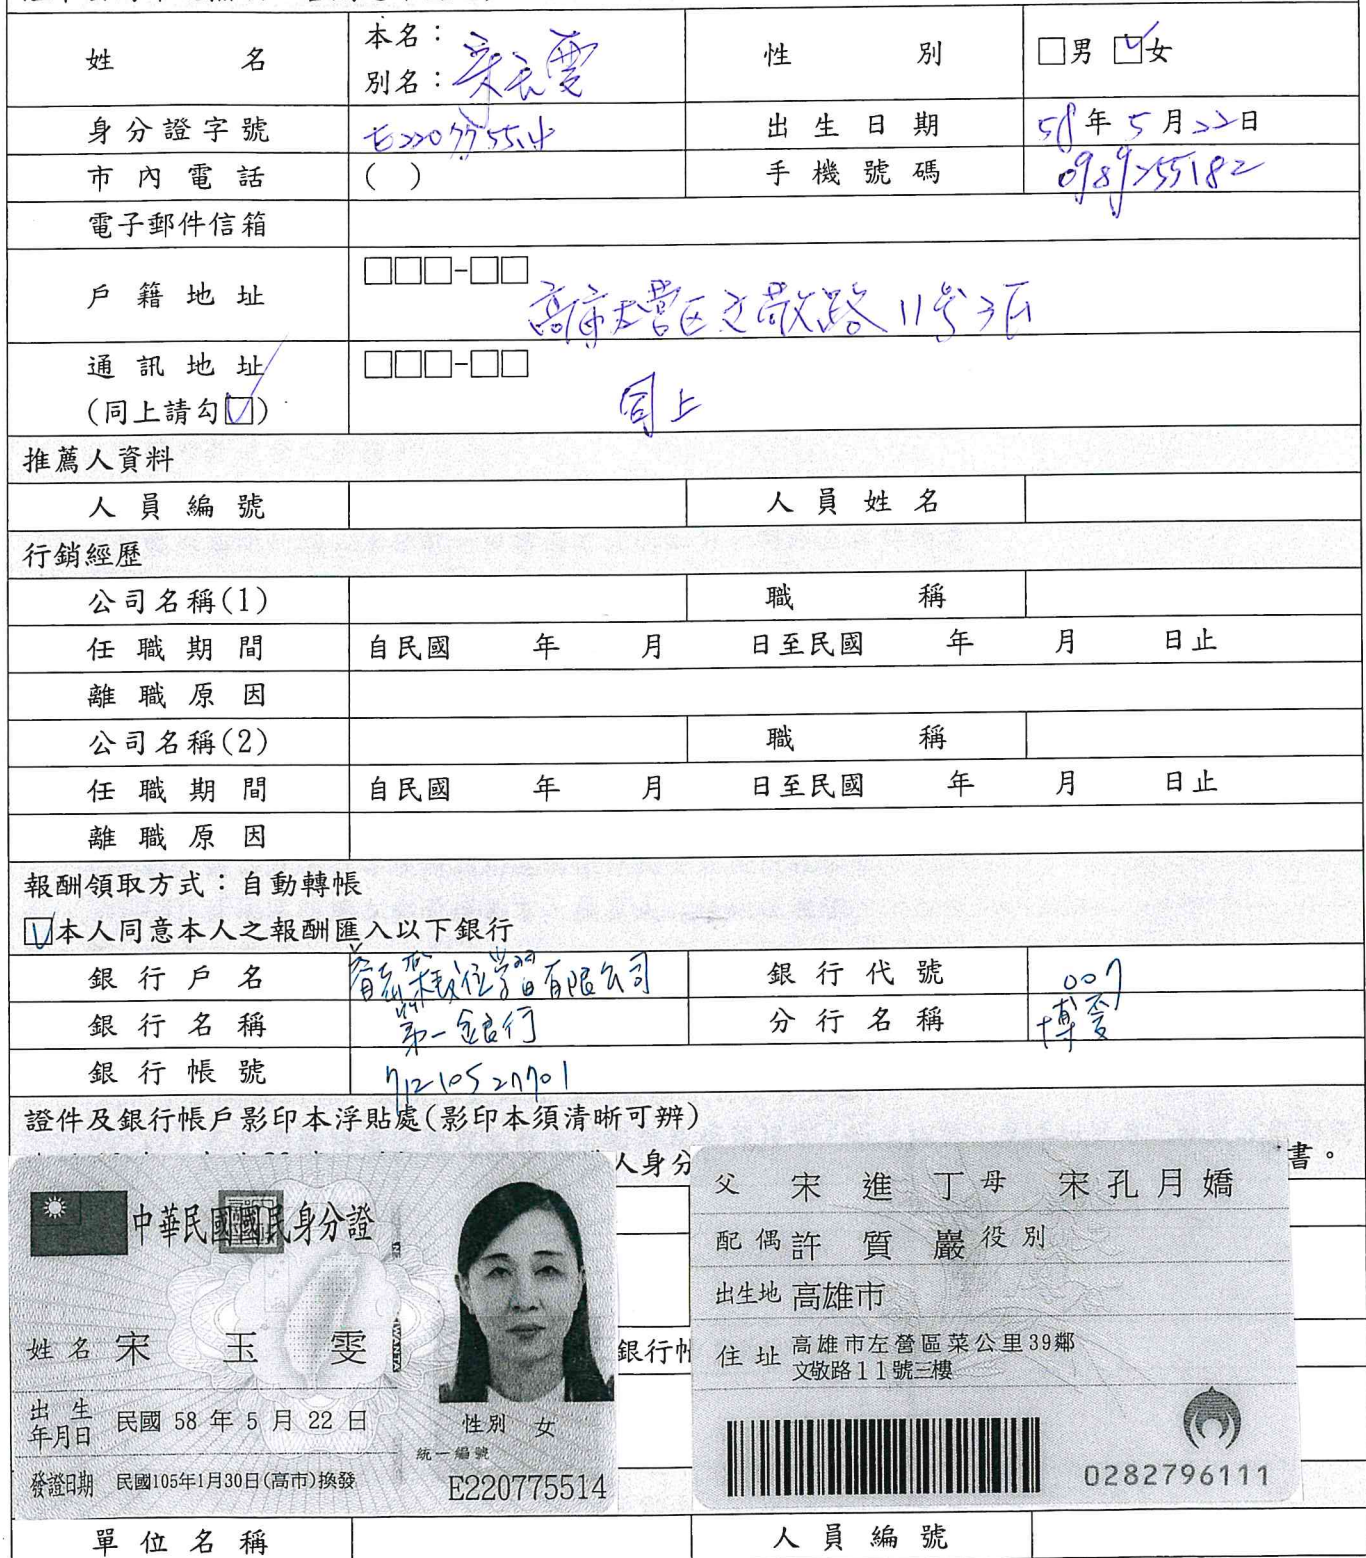 姓名 本名： 別名：宋玉雯 性別 □男 ☑女
身分證字號 E220775514 出生日期 58年5月22日
市內電話 ( ) 手機號碼 0989255182
電子郵件信箱
戶籍地址 □□□-□□
高市左營区文敬路11号3F
通訊地址 □□□-□□
(同上請勾☑) 同上
推薦人資料
人員編號 人員姓名
行銷經歷
公司名稱(1) 職稱
任職期間 自民國 年 月 日至民國 年 月 日止
離職原因
公司名稱(2) 職稱
任職期間 自民國 年 月 日至民國 年 月 日止
離職原因
報酬領取方式：自動轉帳
☑本人同意本人之報酬匯入以下銀行
銀行戶名 數位學習有限公司 銀行代號 007
銀行名稱 第一銀行 分行名稱 博愛
銀行帳號 71210527701
證件及銀行帳戶影印本浮貼處(影印本須清晰可辨)
人身分 書。
中華民國國民身分證
姓名 宋玉雯
出生年月日 民國 58 年 5 月 22 日
性別 女
發證日期 民國105年1月30日(高市)換發
統一編號
E220775514
銀行帳
父 宋進丁 母 宋孔月嬌
配偶 許質巖 役別
出生地 高雄市
住址 高雄市左營區菜公里39鄰
文敬路11號三樓
0282796111
單位名稱 人員編號